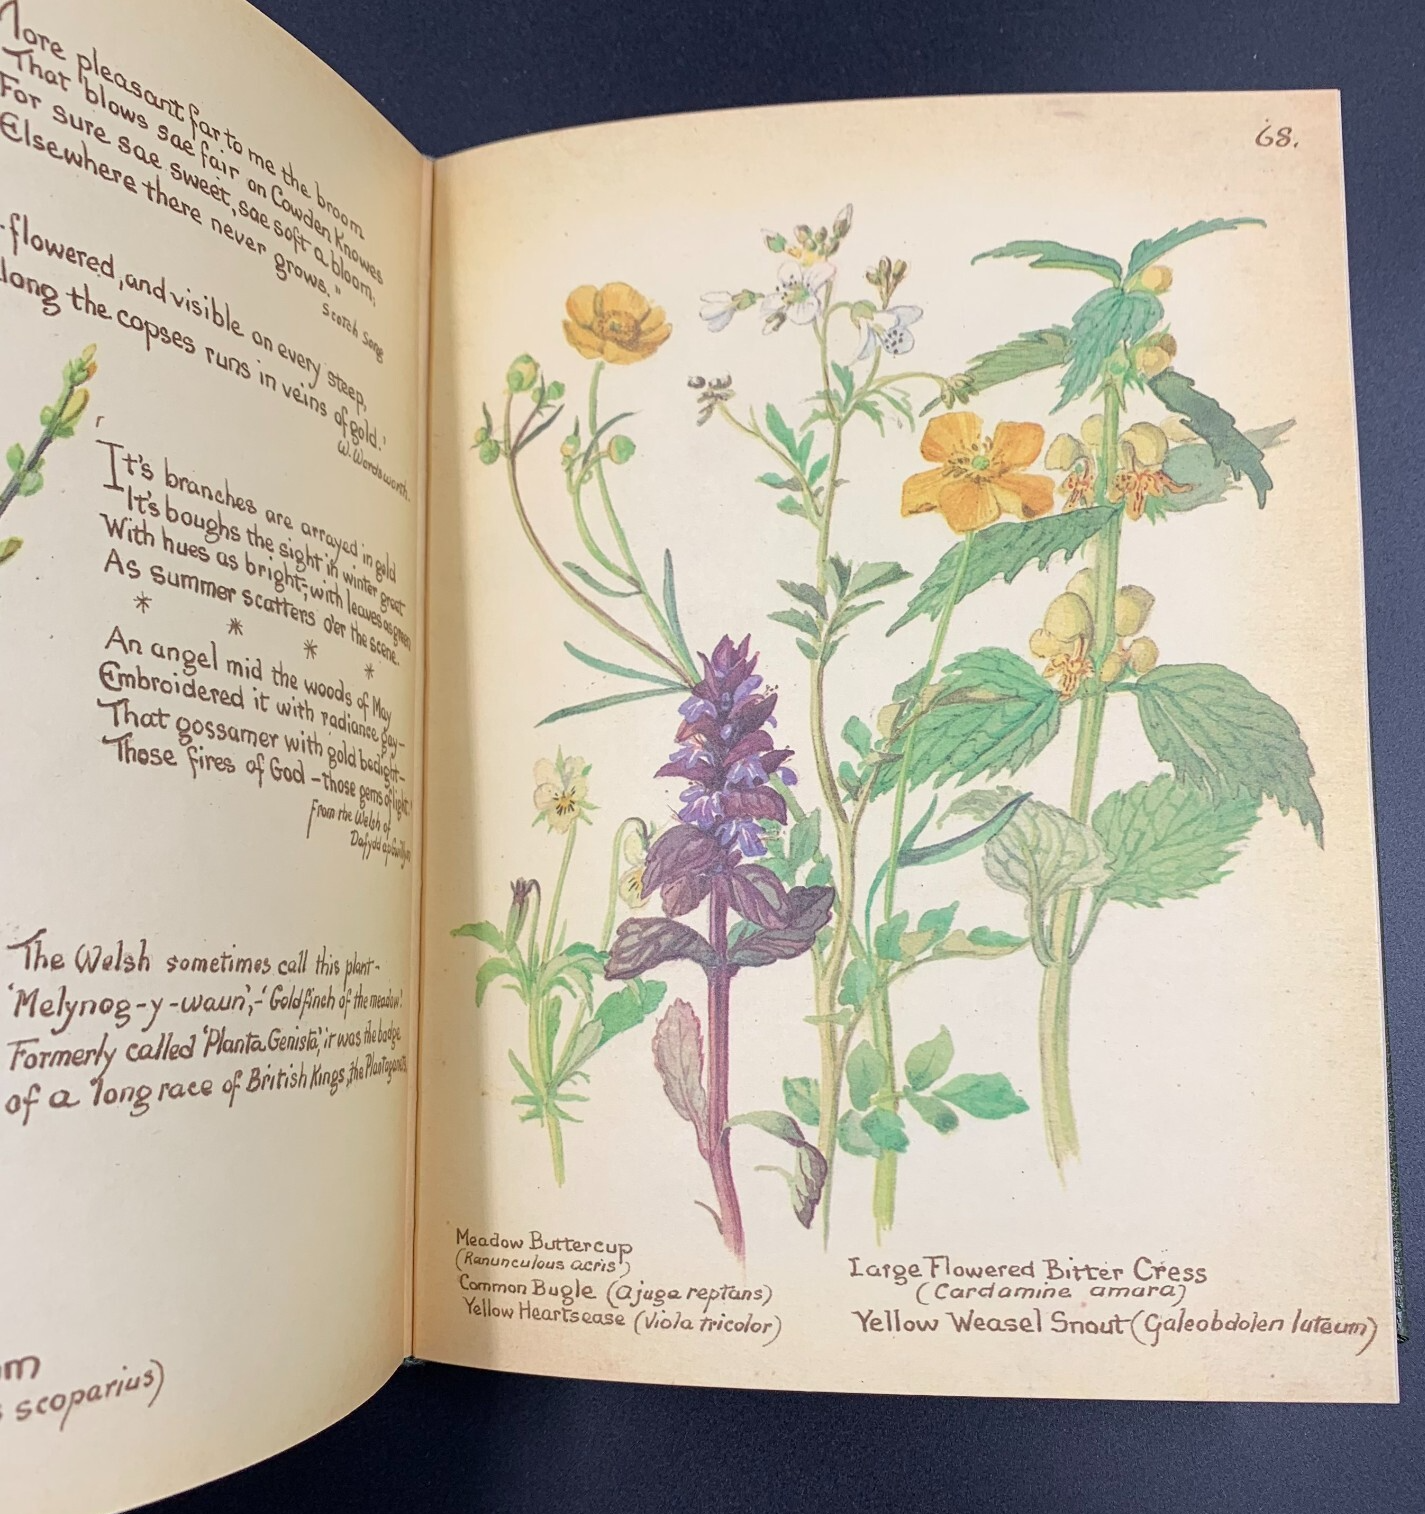 More pleasant far to me the broom
That blows sae fair on Cowden Knowes
For sure sae sweet, sae soft a bloom,
Elsewhere there never grows."
Scotch Song
-flowered, and visible on every steep,
long the copses runs in veins of gold.'
W. Wordsworth.
'It's branches are arrayed in gold
It's boughs the sight in winter greet
With hues as bright; with leaves as green
As summer scatters o'er the scene.
* * * *
An angel mid the woods of May
Embroidered it with radiance gay—
That gossamer with gold bedight—
Those fires of God – those gems of light.'
From the Welsh of
Dafydd ap Gwilym
The Welsh sometimes call this plant-
'Melynog-y-waun',-'Goldfinch of the meadow'.
Formerly called 'Planta Genista', it was the badge
of a long race of British Kings, the Plantagenets.
m
s scoparius)
68.
Meadow Buttercup
(Ranunculous acris)
Common Bugle (Ajuga reptans)
Yellow Heartsease (Viola tricolor)
Large Flowered Bitter Cress
(Cardamine amara)
Yellow Weasel Snout (Galeobdolen luteum)